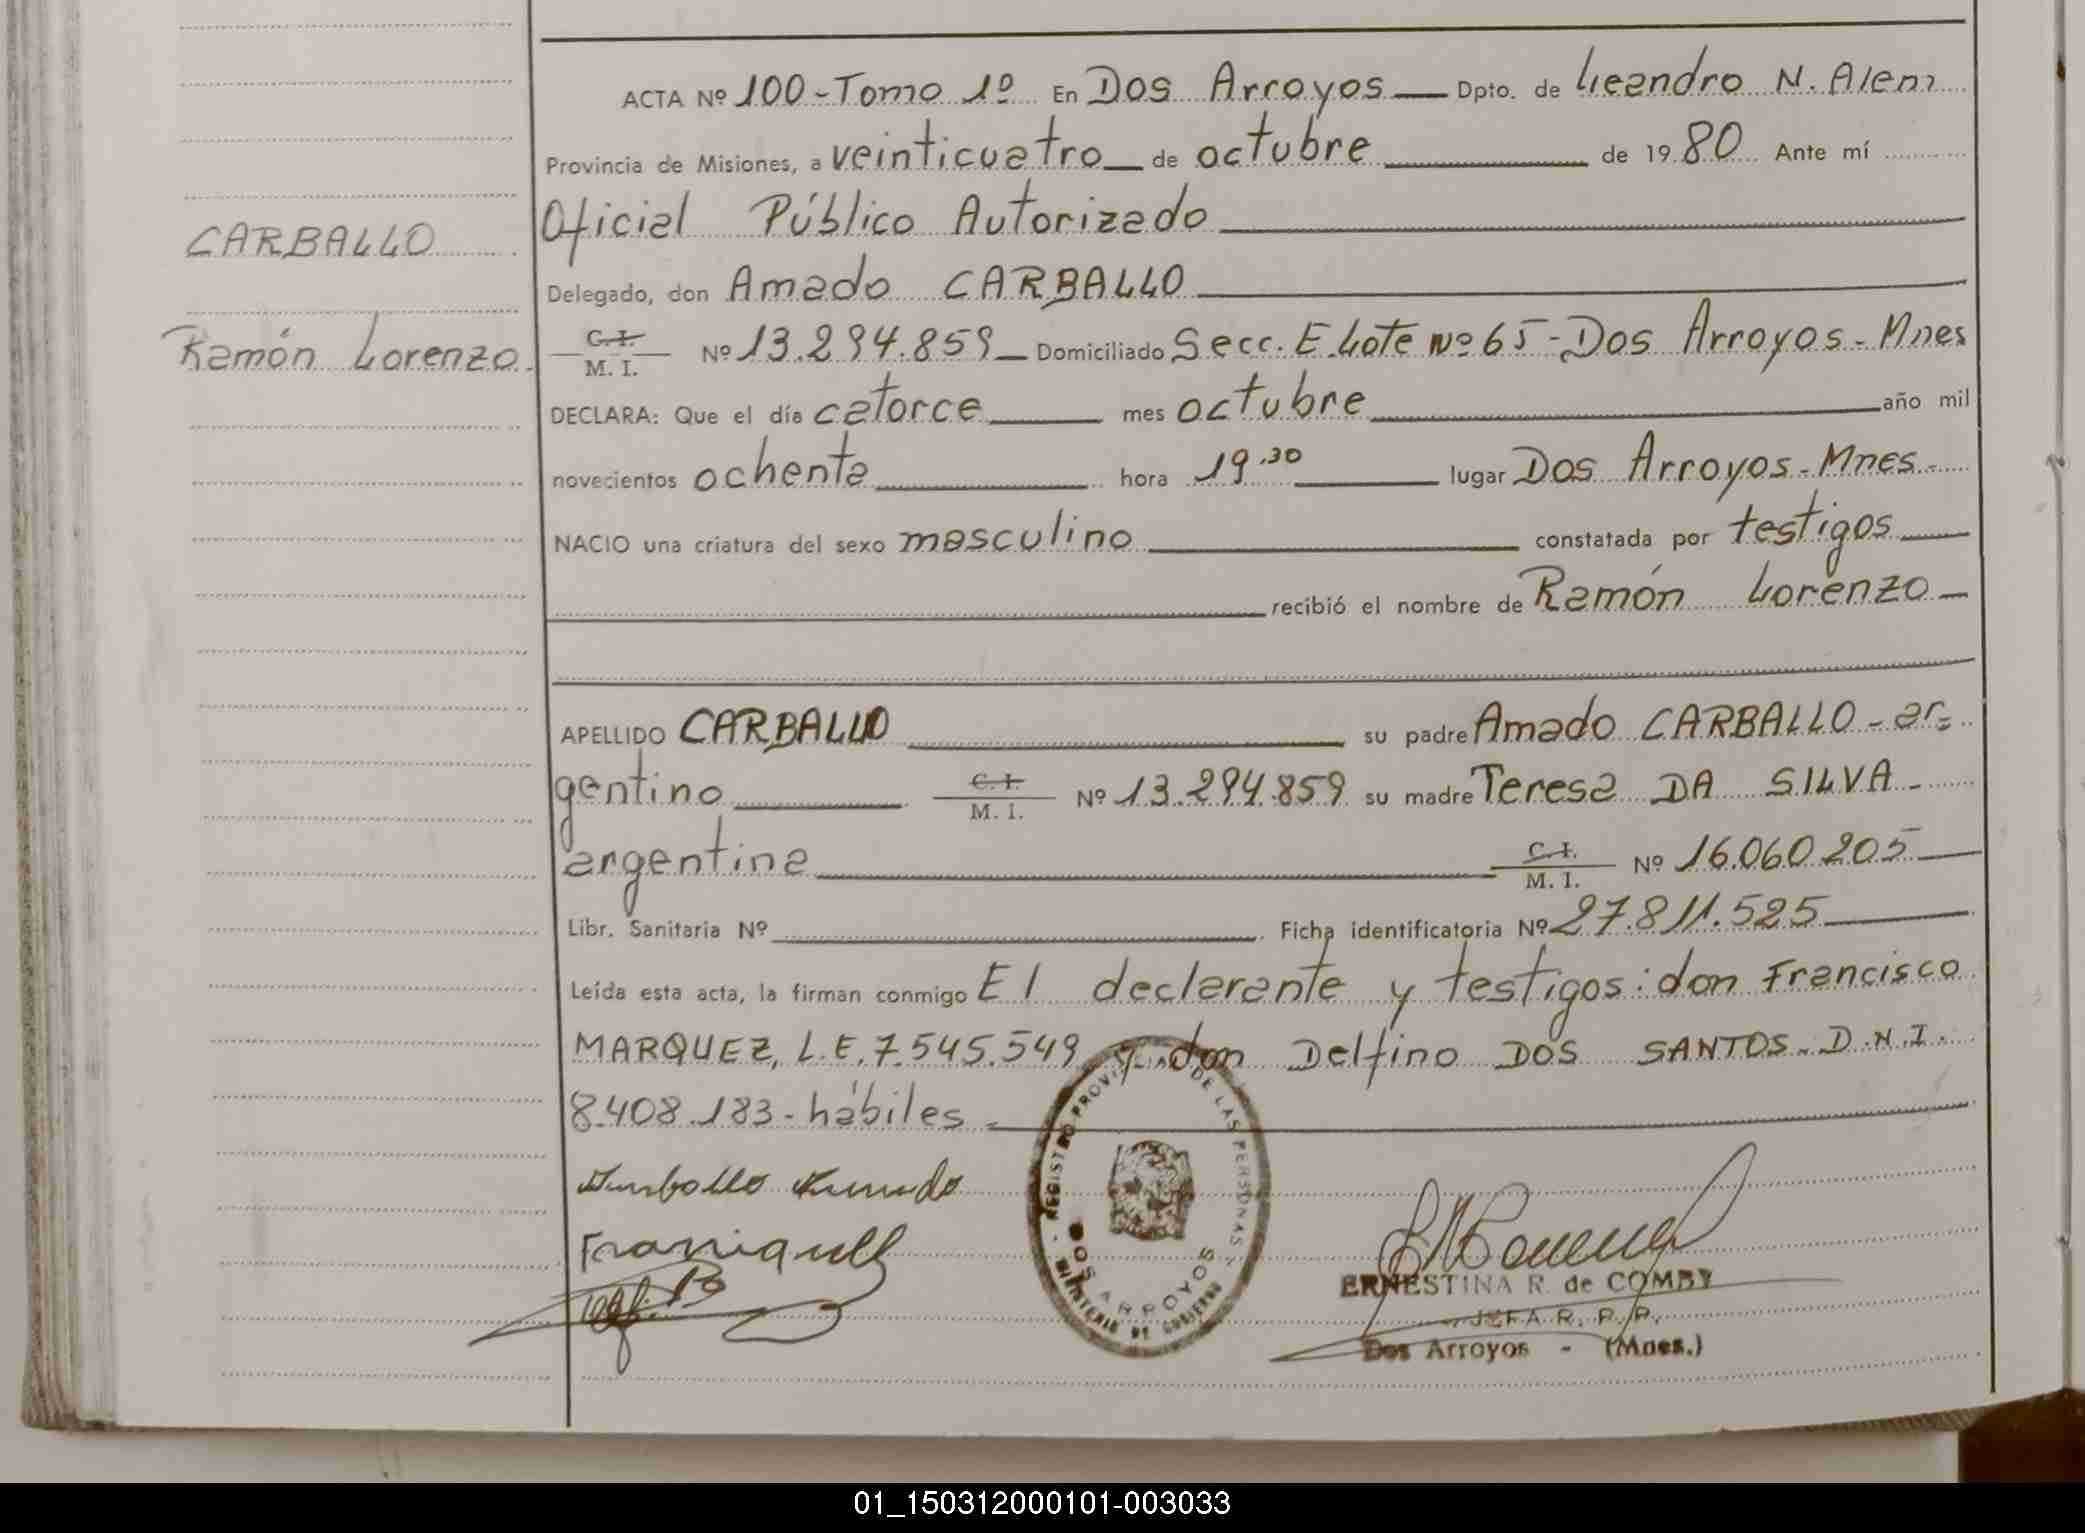 ACTA Nº 100 - Tomo 1º En Dos Arroyos Dpto. de Leandro N. Alem
Provincia de Misiones, a veinticuatro de octubre de 1980 Ante mí
Oficial Público Autorizado
CARBALLO
Delegado, don Amado CARBALLO
Ramón Lorenzo.
C. I.
M. I. Nº 13.294.859 Domiciliado Secc. E. Lote Nº 65 - Dos Arroyos - Mnes
DECLARA: Que el día catorce mes octubre año mil
novecientos ochenta hora 19.30 lugar Dos Arroyos - Mnes.
NACIO una criatura del sexo masculino constatada por testigos
recibió el nombre de Ramón Lorenzo
APELLIDO CARBALLO su padre Amado CARBALLO - ar-
gentino C. I. M. I. Nº 13.294.859 su madre Teresa DA SILVA -
argentina C. I. M. I. Nº 16.060.205
Libr. Sanitaria Nº Ficha identificatoria Nº 27.811.525
Leída esta acta, la firman conmigo El declarante y testigos: don Francisco
MARQUEZ, L.E. 7.545.549 y don Delfino DOS SANTOS - D.N.I.
8.408.183 - hábiles -
REGISTRO PROVINCIAL DE LAS PERSONAS
DOS ARROYOS
MINISTERIO DE GOBIERNO
ERNESTINA R. de COMBY
JEFA R. P. P.
Dos Arroyos - (Mnes.)
01_150312000101-003033